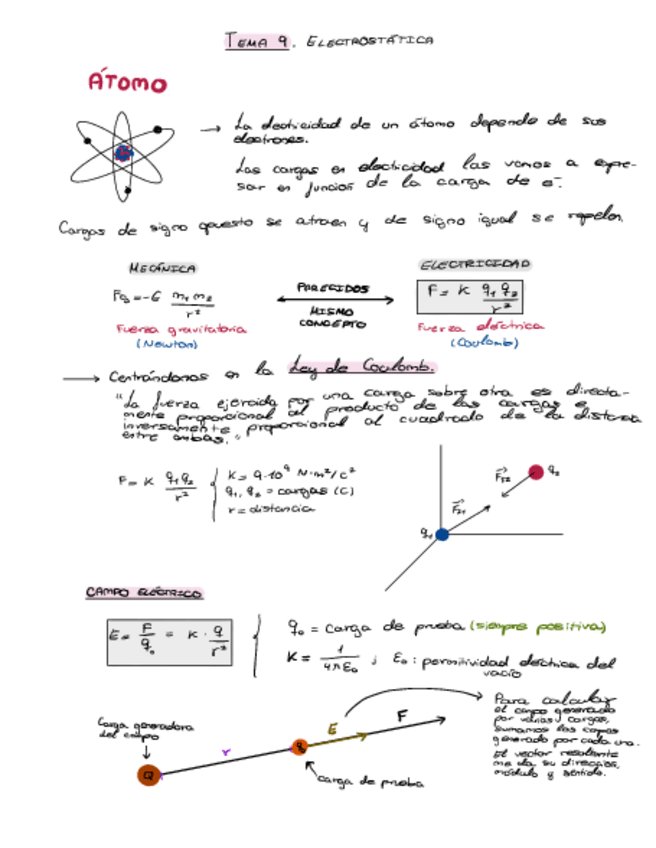 TEMA 9. ELECTROSTÁTICA
ÁTOMO
→ La electricidad de un átomo depende de sus
electrones.
Las cargas en electricidad las vamos a expre-
sar en función de la carga de e⁻.
Cargas de signo opuesto se atraen y de signo igual se repelen.
MECÁNICA
ELECTRICIDAD
Fg = -G m₁ m₂ / r²
PARECIDOS
MISMO
CONCEPTO
F = K q₁ q₂ / r²
Fuerza gravitatoria
(Newton)
Fuerza eléctrica
(Coulomb)
→ Centrándonos en la Ley de Coulomb.
"La fuerza ejercida por una carga sobre otra es directa-
mente proporcional al producto de las cargas e
inversamente proporcional al cuadrado de la distancia
entre ambas."
F = K q₁ q₂ / r²
K = 9·10⁹ N·m²/C²
q₁, q₂ = cargas (C)
r = distancia
F₁₂
q₂
F₂₁
q₁
CAMPO ELÉCTRICO
E = F / q₀ = K · q / r²
q₀ = carga de prueba (siempre positiva)
K = 1 / 4πε₀ ; ε₀: permitividad eléctrica del
vacío
Carga generadora
del campo
Q
r
q
E
F
carga de prueba
Para calcular
el campo generado
por varias cargas,
sumamos los campos
generado por cada una.
El vector resultante
me da su dirección,
módulo y sentido.